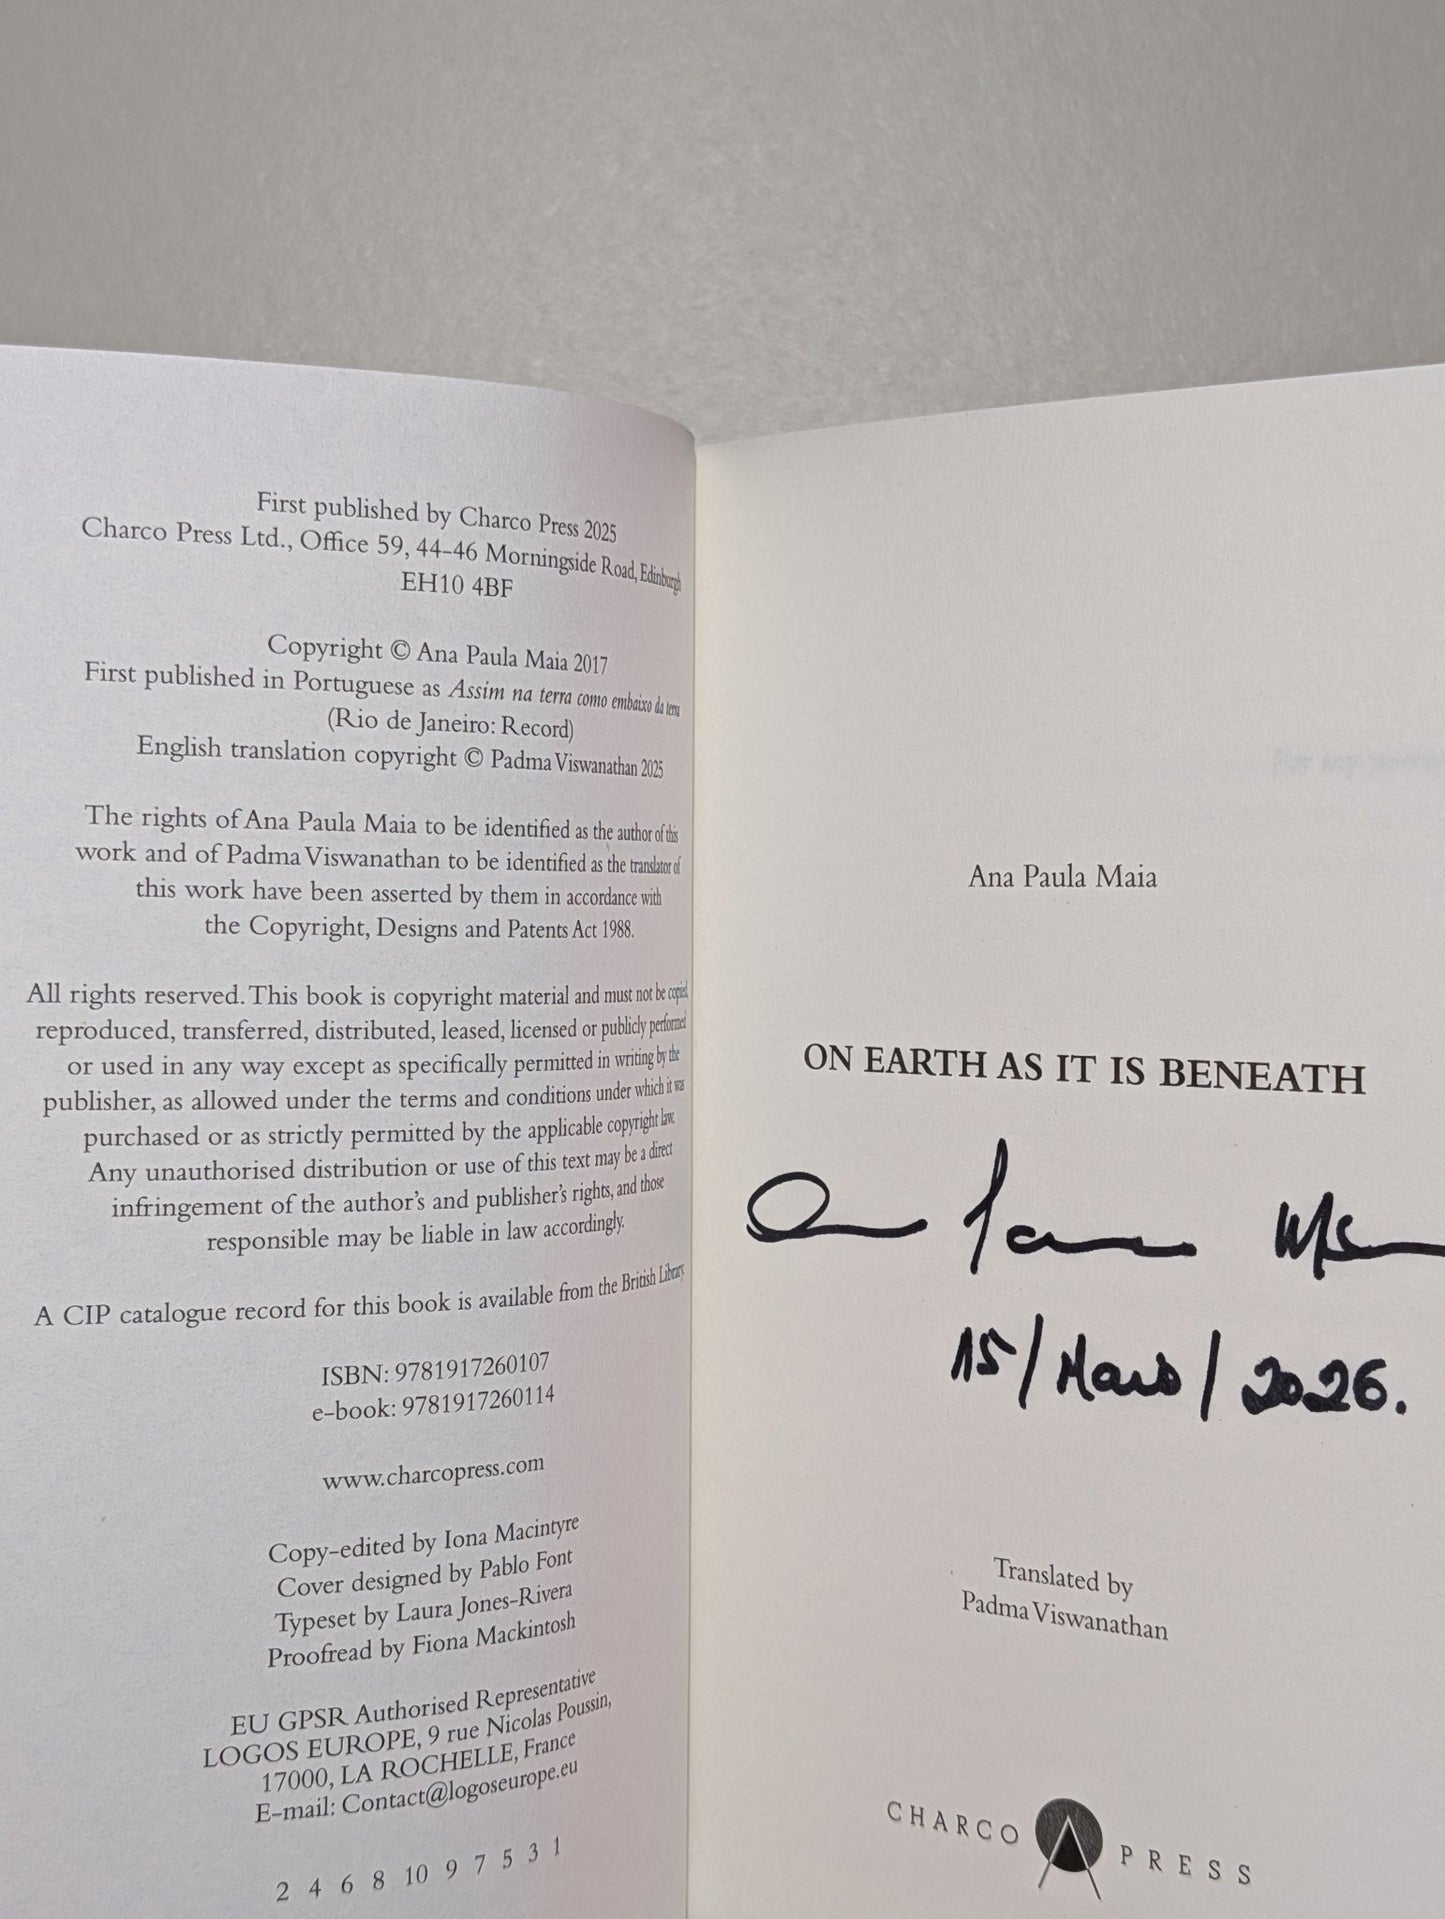 First published by Charco Press 2025
Charco Press Ltd., Office 59, 44-46 Morningside Road, Edinburgh
EH10 4BF
Copyright © Ana Paula Maia 2017
First published in Portuguese as Assim na terra como embaixo da terra
(Rio de Janeiro: Record)
English translation copyright © Padma Viswanathan 2025
The rights of Ana Paula Maia to be identified as the author of this
work and of Padma Viswanathan to be identified as the translator of
this work have been asserted by them in accordance with
the Copyright, Designs and Patents Act 1988.
All rights reserved. This book is copyright material and must not be copied,
reproduced, transferred, distributed, leased, licensed or publicly performed
or used in any way except as specifically permitted in writing by the
publisher, as allowed under the terms and conditions under which it was
purchased or as strictly permitted by the applicable copyright law.
Any unauthorised distribution or use of this text may be a direct
infringement of the author's and publisher's rights, and those
responsible may be liable in law accordingly.
A CIP catalogue record for this book is available from the British Library.
ISBN: 9781917260107
e-book: 9781917260114
www.charcopress.com
Copy-edited by Iona Macintyre
Cover designed by Pablo Font
Typeset by Laura Jones-Rivera
Proofread by Fiona Mackintosh
EU GPSR Authorised Representative
LOGOS EUROPE, 9 rue Nicolas Poussin,
17000, LA ROCHELLE, France
E-mail: Contact@logoseurope.eu
2 4 6 8 10 9 7 5 3 1
Ana Paula Maia
ON EARTH AS IT IS BENEATH
15/Maio/2026.
Translated by
Padma Viswanathan
CHARCO PRESS